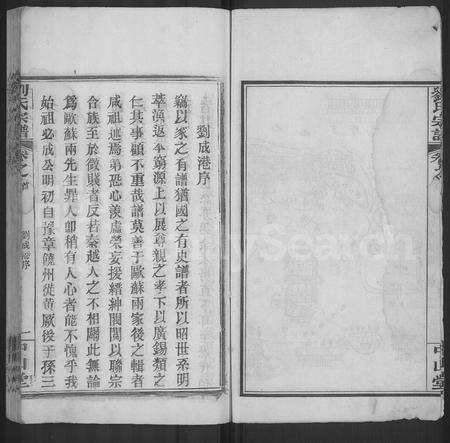 劉氏宗譜
卷之首
中山堂
劉成港序
竊以家之有譜猶國之有史譜者所以昭世系明
萃渙返本窮源上以展尊親之孝下以廣錫類之
仁其事顧不重哉譜莫善于歐蘇兩家後之輯者
咸祖述焉弟恐心羨虛榮妄援縉紳閥閱以聯宗
合族至於微賤者反若秦越人之不相關此無論
為歐蘇兩先生罪人卽稍有人心者能不愧乎我
始祖必成公明初自豫章饒州從黃厥後子孫三
劉氏宗譜
卷之首
劉成港序
一
中山堂